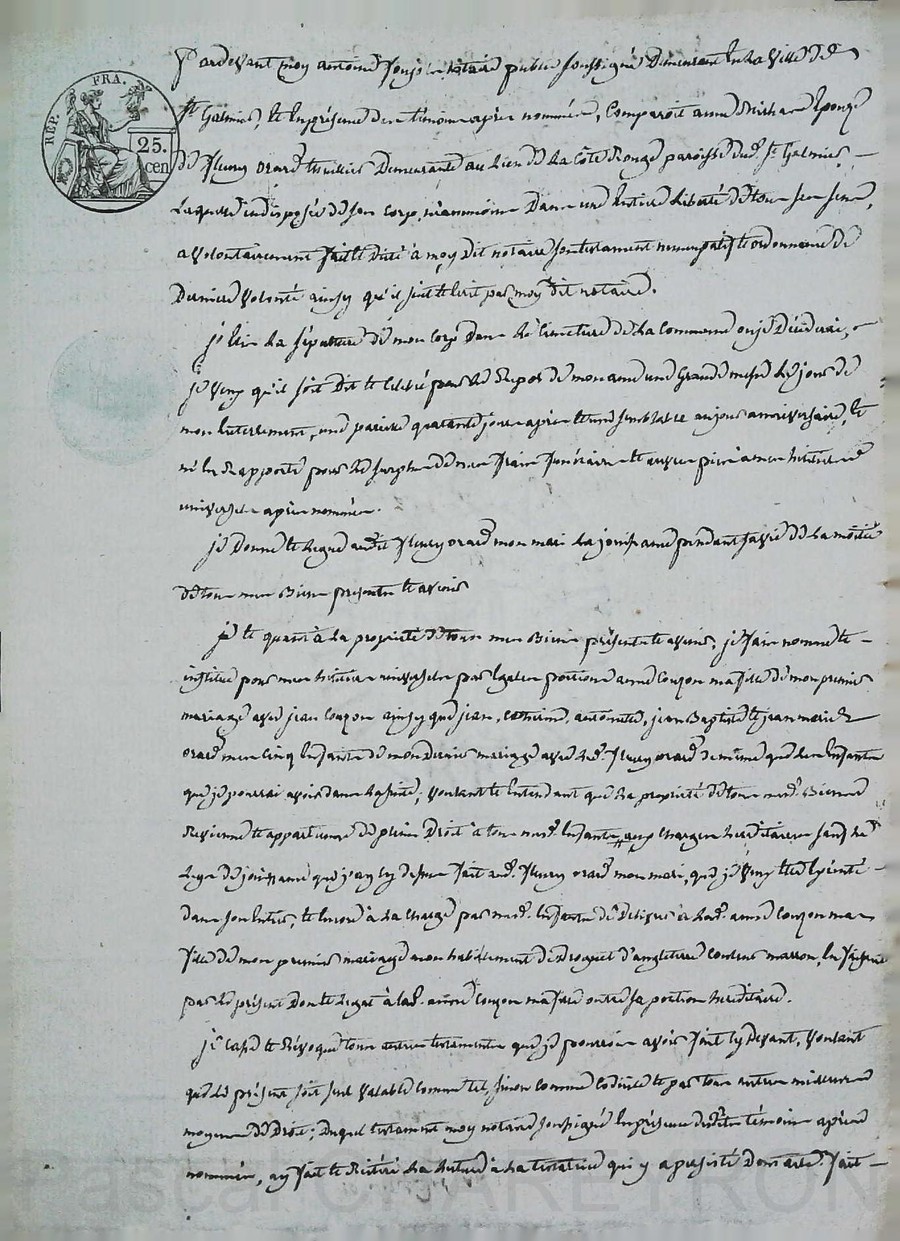 REP. FRA.
25.
cen
Pardevant moy antoine notaire public soussigné Demeurant En la Ville de
St. Galmier, et En présence des témoins après nommés, Comparoit anne Epouse
de fleury orard tuillier Demeurante au Lieu de La Côte Rouge paroisse dud. St. Galmier, —
Laquelle indisposée de son corp, néanmoins Dans une Entière Liberté de tous ses sens,
a Volontairement fait et Dicté à moy Dit notaire son testament nuncupatif et ordonnance de
Derniere Volonté ainsy qu'il suit et Ecrit par moy dit notaire.
j'Elis La sépulture de mon Corp Dans Le Cimetiere de La Commune ou je Décéderai,
je Veux qu'il soit Dit et Célébré pour Le Repos de mon ame une Grande messe Le jour de
mon Enterrement, une pareille quarante jours après et une semblable au jour anniversaire, et
m'En Rapporte pour Le surplus de mes frais funéraires et œuvres pies à mes héritiers
universels après nommés.
je Donne et Legue audit fleury orard mon mari La jouissance pendant sa vie de La moitié
de tous mes Biens présents et avenir
Et quant à La propriété de tous mes Biens présents et avenir, je fais nomme et —
institue pour mes héritiers universels par Egales portions anne Couzon ma fille de mon premier
mariage avec jean Couzon ainsy que jean, Catherine, antoinette, jean Baptiste et jean marie
orard mes Cinq Enfants de mon Dernier mariage avec Led. fleury orard de même que Les Enfants
que je pourrai avoir dans La suite; Voulant et Entendant que La propriété de tous mesd. Biens
Revienne et appartienne de plein Droit à tous mesd. Enfants, aux Charges héréditaires sauf Le
Legs de jouissance que j'ay Cy dessus fait aud. fleury orard mon mari, que je Veux Etre Exécuté —
dans son Entier, et Encore à La Charge par mesd. Enfants de Délivrer à Lad. anne Couzon ma
fille de mon premier mariage mon habillement de Droguet d'angleterre Couleur marron, En faisant
par Le présent Don et Legat à Lad. anne Couzon ma fille outre sa portion héréditaire.
je Casse et Révoque tous autres testaments que je pourrois avoir fait Cy Devant, Voulant
que Le présent soit seul Valable comme tel, sinon comme Codicile et par tous autres meilleurs
moyens de Droit; Duquel testament moy notaire soussigné En présence desdits témoins après
nommés, ay fait et Réitéré La Lecture à La testatrice qui y a persisté Dont acte. fait —